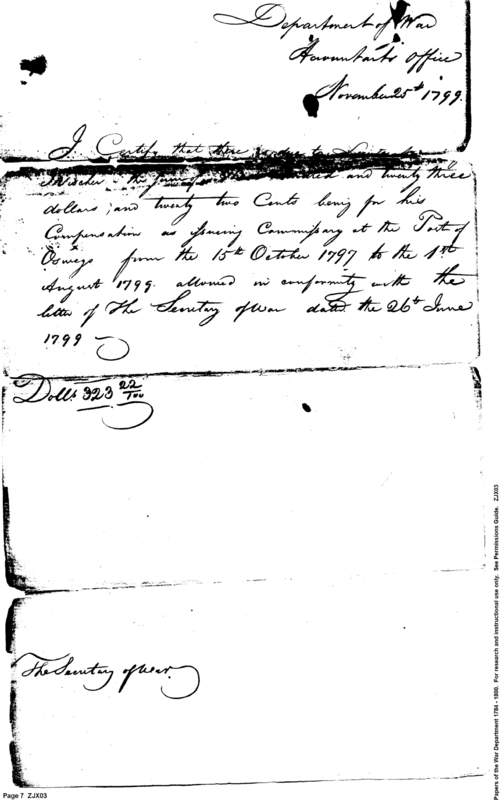 Department of War
Accountants office
November 25th 1799.
I Certify that there is due to
the sum of three hundred and twenty three
dollars, and twenty two Cents being for his
Compensation as Issuing Commissary at the Port of
Oswego from the 15th October 1797 to the 1st
August 1799. allowed in conformity with the
letter of The Secretary of War dated the 26th June
1799
Dolls 323 22/100
The Secretary of War.
Page 7 ZJX03
Papers of the War Department 1784 - 1800. For research and instructional use only. See Permissions Guide. ZJX03